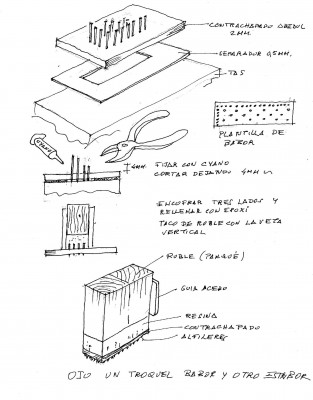 CONTRACHAPADO ABEDUL
2MM.
SEPARADOR 0,5MM.
TAS
PLANTILLA DE
BABOR
CYANO
4MM
FIJAR CON CYANO
CORTAR DEJANDO 4MM
ENCOFRAR TRES LADOS Y
RELLENAR CON EPOXI
TACO DE ROBLE CON LA VETA
VERTICAL
ROBLE (PARQUÉ)
GUIA ACERO
RESINA
CONTRACHAPADO
ALFILERES
OJO UN TROQUEL BABOR Y OTRO ESTRIBOR